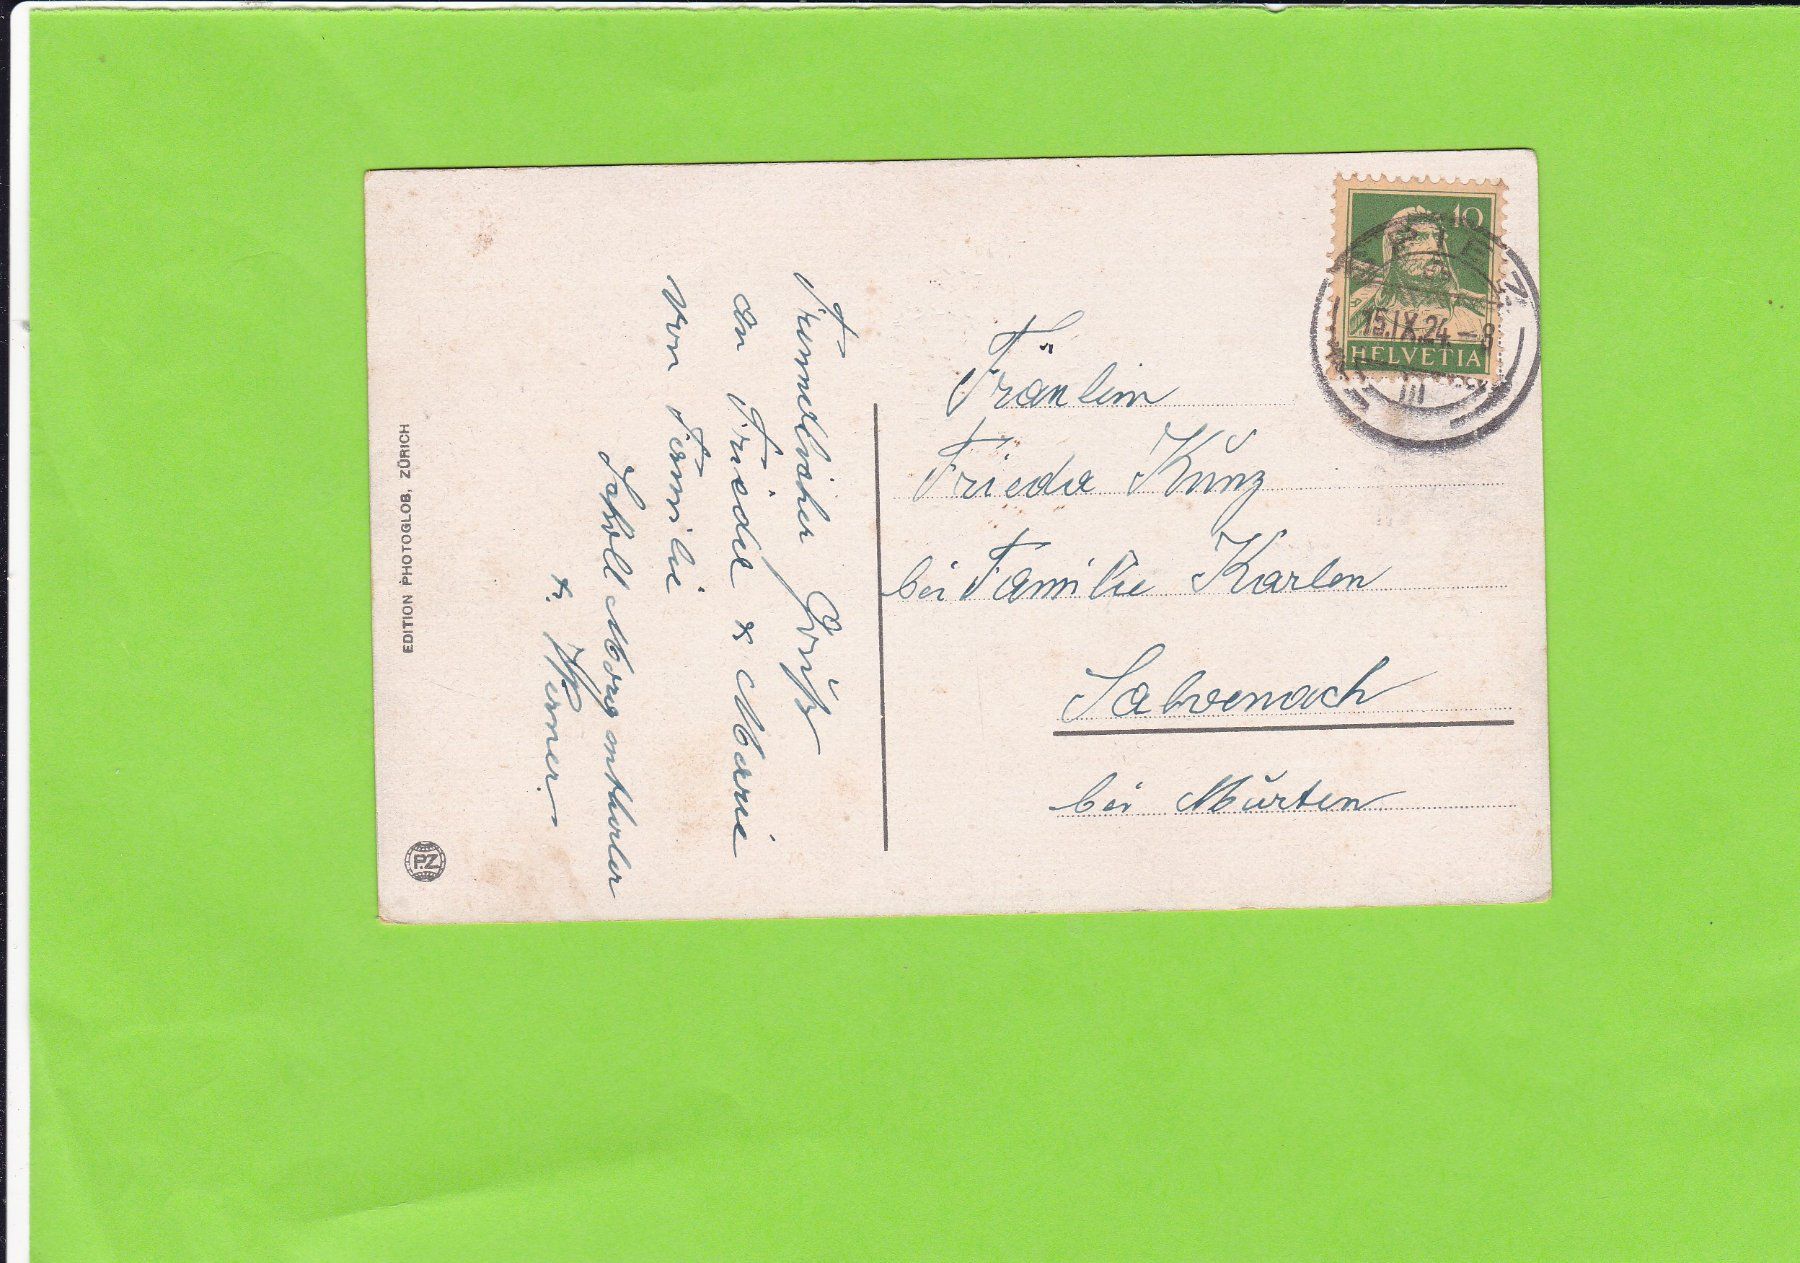 EDITION PHOTOGLOB, ZÜRICH
P.Z
Freundlicher Gruß
an Frieda & Marie
von Familie
Morgenthaler
& Werner.
10
HELVETIA
15.IX.24.–8
III
Fräulein
Frieda Kunz
bei Familie Karlen
Salvenach
bei Murten